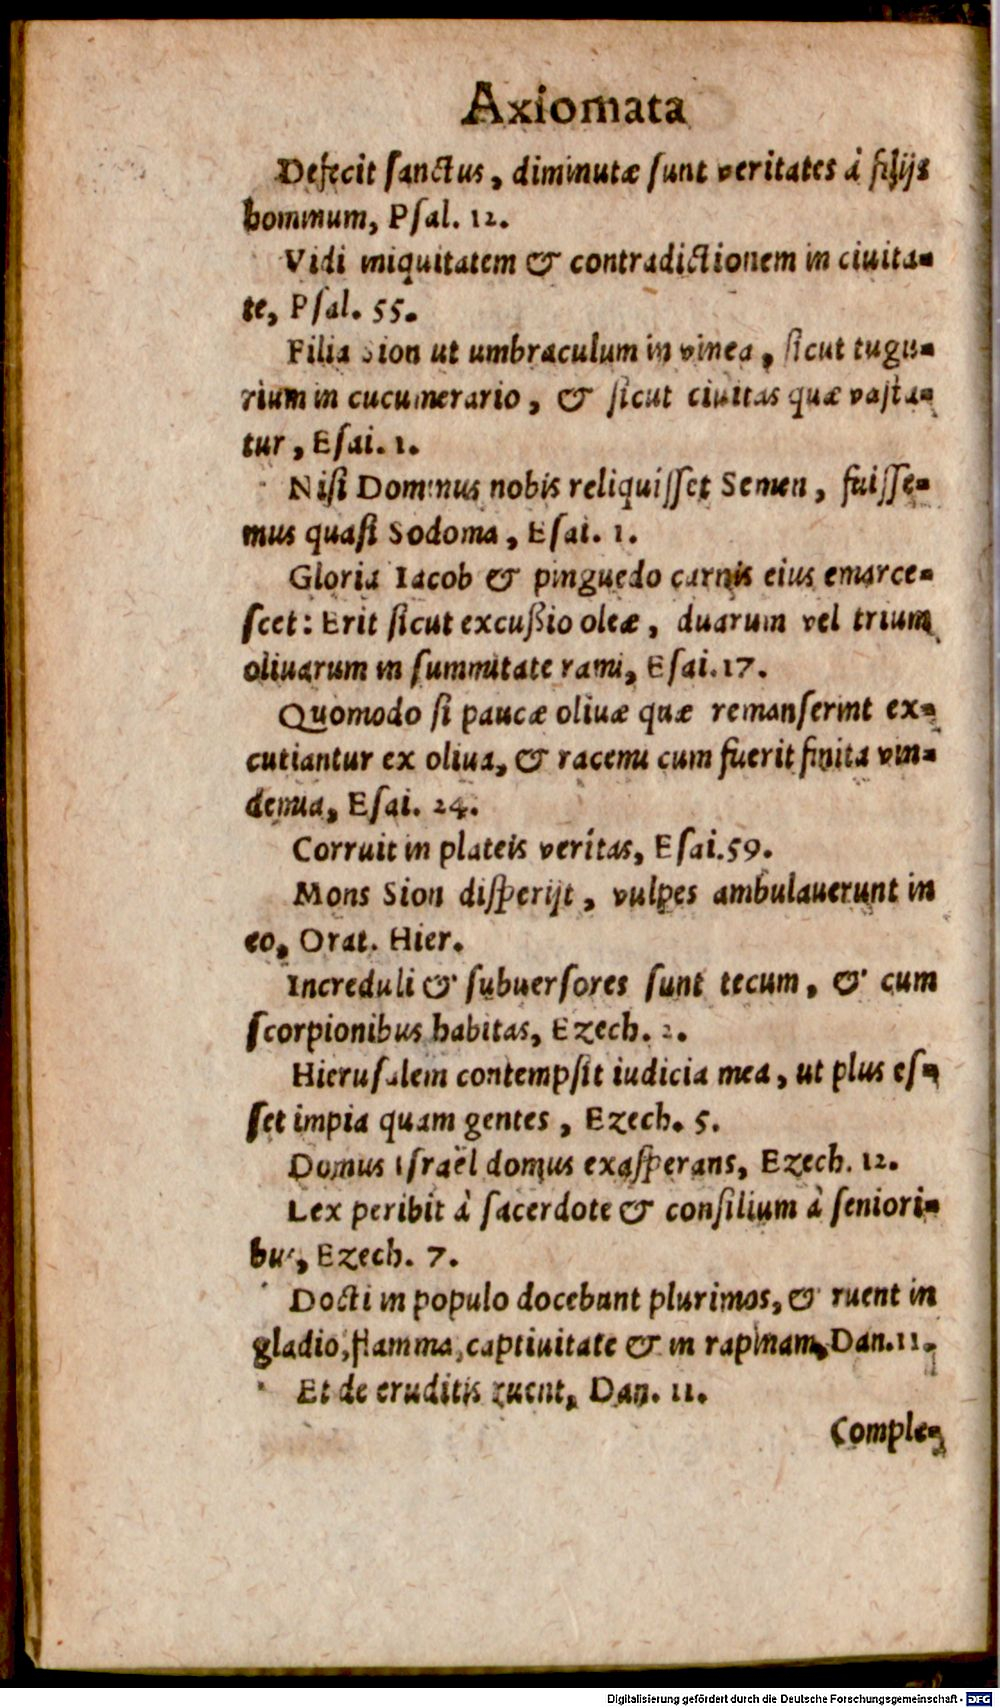 Axiomata
Defecit ſanctus, diminutæ ſunt veritates à filijs
hominum, Pſal. 12.
Vidi iniquitatem & contradictionem in ciuita-
te, Pſal. 55.
Filia Sion ut umbraculum in vinea, ſicut tugu-
rium in cucumerario, & ſicut ciuitas quæ vaſta-
tur, Eſai. 1.
Niſi Dominus nobis reliquiſſet Semen, fuiſſe-
mus quaſi Sodoma, Eſai. 1.
Gloria Iacob & pinguedo carnis eius emarce-
ſcet: Erit ſicut excußio oleæ, duarum vel trium
oliuarum in ſummitate rami, Eſai. 17.
Quomodo ſi paucæ oliuæ quæ remanſerint ex-
cutiantur ex oliua, & racemi cum fuerit finita vin-
demia, Eſai. 24.
Corruit in plateis verítas, Eſai. 59.
Mons Sion diſperijt, vulpes ambulauerunt in
eo, Orat. Hier.
Increduli & ſubuerſores ſunt tecum, & cum
ſcorpionibus habitas, Ezech. 2.
Hieruſalem contempſit iudicia mea, ut plus eſ-
ſet impia quam gentes, Ezech. 5.
Domus Iſraël domus exaſperans, Ezech. 12.
Lex peribit à ſacerdote & conſilium à ſeniori-
bus, Ezech. 7.
Docti in populo docebunt plurimos, & ruent in
gladio, flamma, captiuitate & in rapinam, Dan. 11.
Et de eruditis ruent, Dan. 11.
Comple-
Digitalisierung gefördert durch die Deutsche Forschungsgemeinschaft - DFG